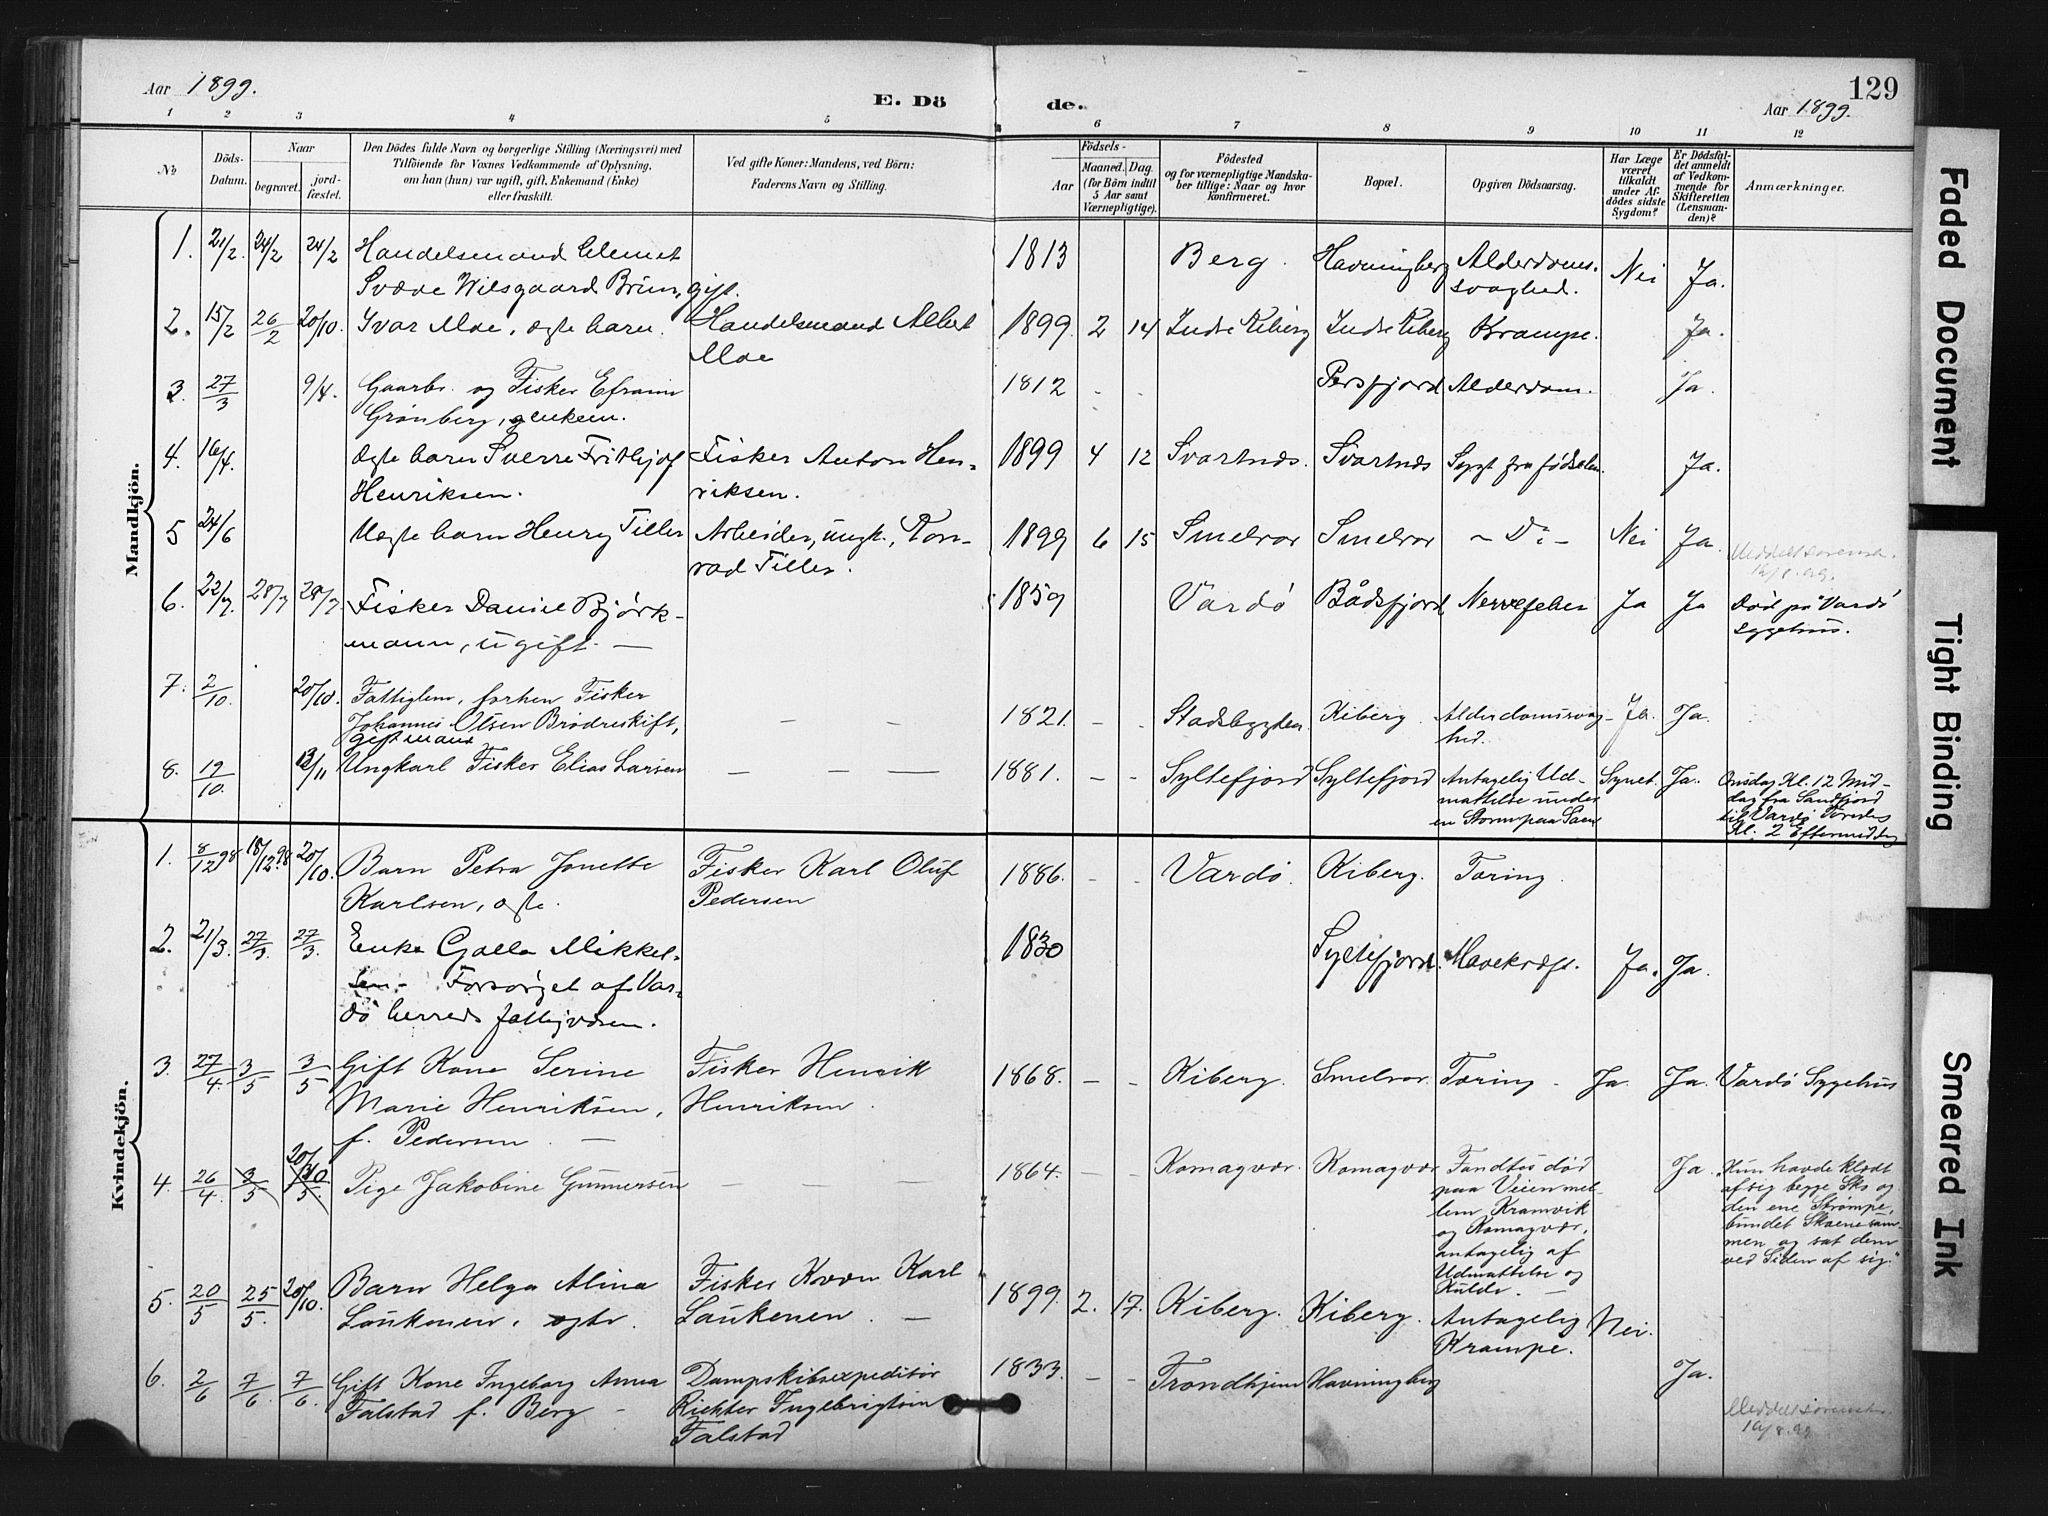 Aar 1899.
E. Dö
de.
129
Aar 1899.
1 2 3 4 5 6 7 8 9 10 11 12
No
Döds-
Datum.
Naar
begravet.
jord-
fæstet.
Den Dödes fulde Navn og borgerlige Stilling (Næringsvei) med
Tilföiende for Voxnes Vedkommende af Oplysning,
om han (hun) var ugift, gift, Enkemand (Enke)
eller fraskilt.
Ved gifte Koner: Mandens, ved Börn:
Faderens Navn og Stilling.
Födsels-
Aar
Maaned. Dag.
(for Börn indtil
5 Aar samt
Værnepligtige).
Födested
og for værnepligtige Mandska-
ber tillige: Naar og hvor
konfirmeret.
Bopæl.
Opgiven Dödsaarsag.
Har Læge
været
tilkaldt
under Af-
dödes sidste
Sygdom?
Er Dödsfal-
det anmeldt
af Vedkom-
mende for
Skifteretten
(Lensman-
den)?
Anmærkninger.
Mandkjön.
1. 21/2. 24/2 24/2 Handelsmand Clemet
Svæve Wilsgaard Brun, gift. 1813 Berg. Havningberg Alderdoms-
svaghed. Nei Ja.
2. 15/2 26/2 20/10. Ivar Moe, ægte barn. Handelsmand Albert
Moe 1899. 2 14 Indre Kiberg Indre Kiberg Krampe. Ja.
3. 27/3 9/4. Gaarbr. og Fisker Efraim
Grønberg, enkem. 1812 - - Persfjord Alderdom. Ja.
4. 16/4. Ægte barn Sverre Frithjof
Henriksen. Fisker Anton Hen-
riksen. 1899 4 12 Svartnæs. Svartnæs Sygt fra fødselen. Ja.
5 24/6 Uægte barn Henry Tiller Arbeider, ungk., Kon-
rad Tiller. 1899 6 15 Smelror Smelror - Do - Nei Ja.
6. 22/7. 28/7 28/7 Fisker Daniel Bjørk-
mann, ugift. — 1859 Vardö Bådsfjord Nervefeber Ja Ja Död på Vardö
sygehus.
7. 2/10. 20/10. Fattiglem, forhen Fisker
Johannes Olsen Brødreskift,
gift mand — — 1821. - - Stadsbygden Kiberg. Alderdomssvag-
hed. Ja. Ja.
8. 19/10. 12/11 Ungkarl Fisker Elias Larsen — — — 1881. - - Syltefjord Syltefjord Antagelig Ud-
mattelse under
en Storm paa Søen Synet. Ja. Onsdag Kl. 12 Mid-
dag fra Sandfjord
til Vardö Torsdag
Kl. 2 Eftermiddag
Kvindekjön.
1. 8/12 98 18/12 98 20/10. Barn Petra Jonette
Karlsen, ægte. Fisker Karl Oluf
Pedersen 1886. - - Vardö. Kiberg. Tæring.
2. 21/3. 27/3. 27/3. Enke Gjalla Mikkel-
sen - Forsørget af Var-
dö herreds fattigvæsen. 1830 Syltefjord. Mavekræft. Ja. Ja.
3. 27/4. 3/5 3/5 Gift Kone Serine
Marie Henriksen,
f. Pedersen. — Fisker Henrik
Henriksen. 1868. - - Kiberg. Smelror. Tæring - Ja. Ja. Vardö Sygehus
4. 26/4. 3/5 20/10 Pige Jakobine Gunnersen — — — 1864. - - Komagvær. Komagvær Fandtes død
paa Veien mel-
lem Kramvik
og Komagvær,
antagelig af
Udmattelse og
Kulde. — Ja. "Hun havde klædt
af sig begge Sko og
den ene Strømpe,
bundet Skoene sam-
men og sat dem
ved Siden af sig."
5. 20/5 25/5. 20/10. Barn Helga Alina
Laukonen, ægte. Fisker Kvæn Karl
Laukonen. — 1899. 2. 17. Kiberg. Kiberg. Antagelig
Krampe. Nei.
6. 2/6 7/6. 7/6. Gift Kone Ingeborg Anna
Falstad f. Berg - Dampskibsexpeditør
Richter Ingebrigtsen
Falstad 1833. - - Trondhjem Havningberg Ja.
Faded Document
Tight Binding
Smeared Ink